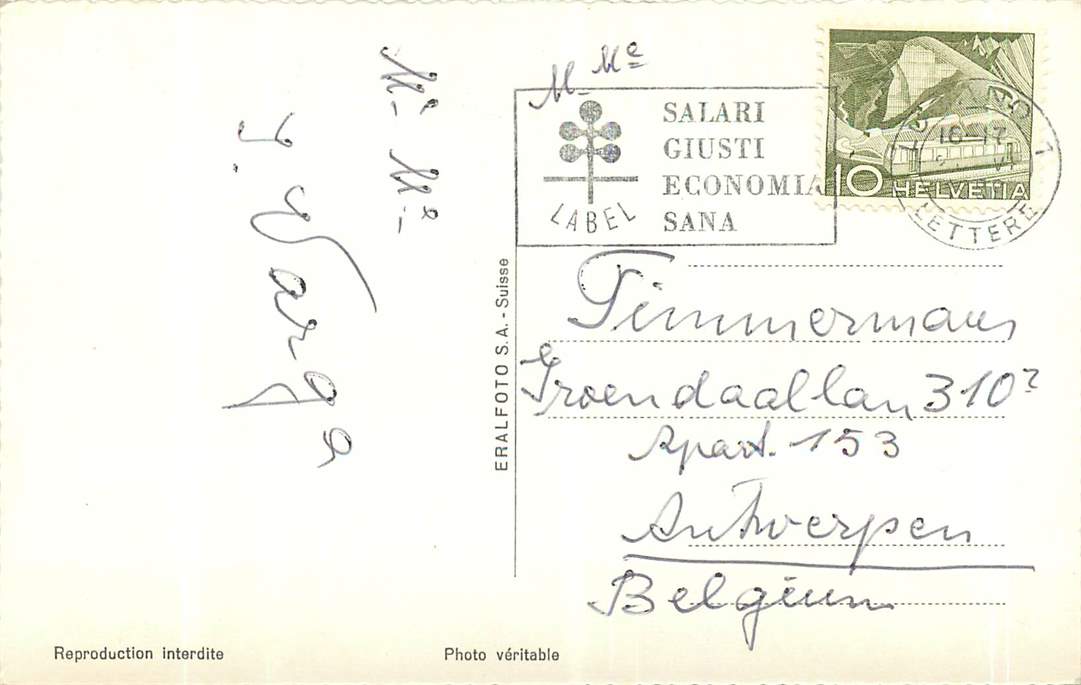 Mr Me
J. Varga
M- Me
SALARI
GIUSTI
ECONOMIA
SANA
LABEL
10 HELVETIA
LOCARNO 1
LETTERE
16-17
ERALFOTO S.A. - Suisse
Timmermans
Groendaallan 310²
Apart. 153
Antwerpen
Belgium
Reproduction interdite
Photo véritable